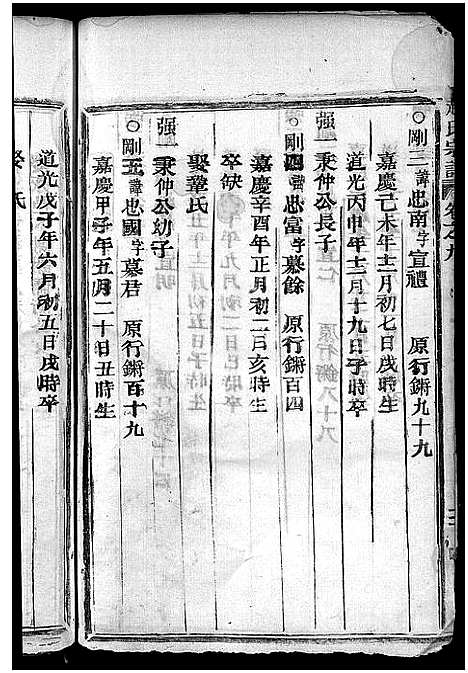 氏宗譜
○剛二諱忠南字宣禮 原行鏘九十九
嘉慶己未年十二月初七日戌時生
道光丙申年十二月十九日子時卒
强一秉仲公長子
○剛四諱忠富字慕餘 原行鏘百四
嘉慶辛酉年正月初二日亥時生
卒缺
娶葦氏
强一秉仲公幼子
○剛五諱忠國字慕君 原行鏘百十九
嘉慶甲子年五月二十日丑時生
道光戊子年六月初五日戌時卒
娶 氏